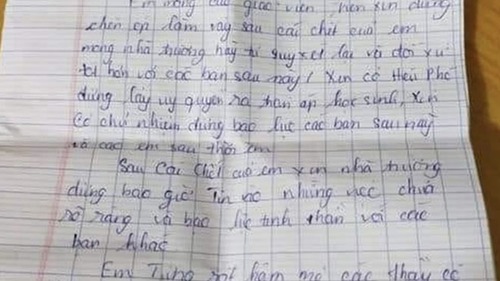 Em mong các giáo viên nên xin đừng
chèn ép làm vậy sau cái chết của em
mong nhà trường hãy tự suy xét lại và đối xử
tốt hơn với các bạn sau này! Xin cô Hiệu Phó
đừng lấy uy quyền ra trấn áp học sinh, xin
cô chủ nhiệm đừng bạo lực các bạn sau này
và các em sau thời em
Sau cái chết của em xin nhà trường
đừng bao giờ những việc chưa
rõ ràng và bạo lực tinh thần với các
bạn khác
Em các thầy cô